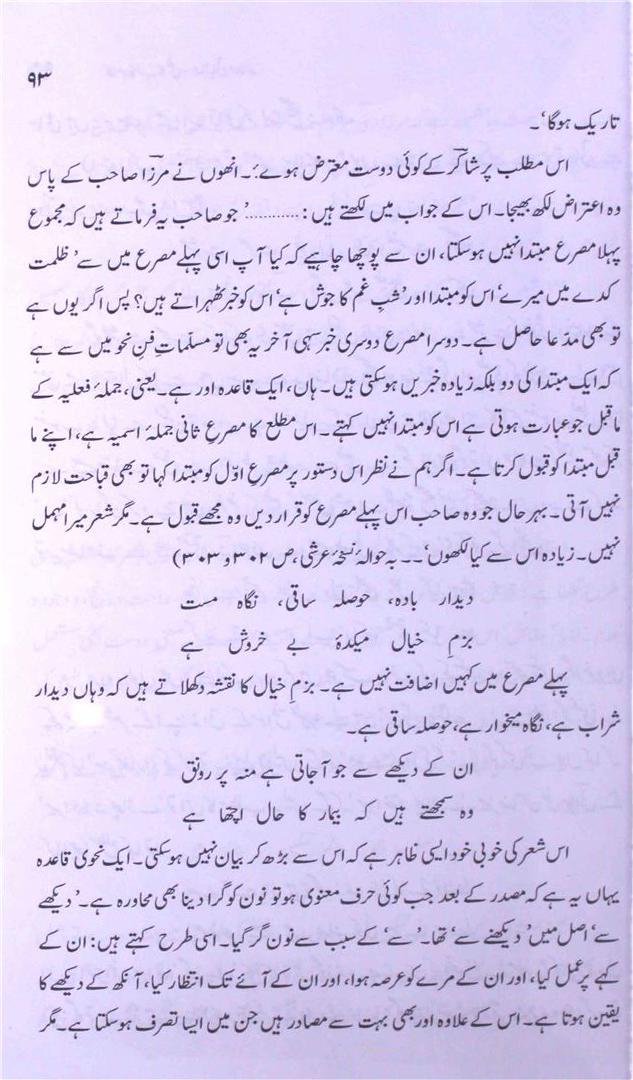 ۹۳
تاریک ہوگا‘۔
اس مطلب پر شاکرؔ کے کوئی دوست معترض ہوے؟۔ انھوں نے مرزؔا صاحب کے پاس
وہ اعتراض لکھ بھیجا۔ اس کے جواب میں لکھتے ہیں: ............’ جو صاحب یہ فرماتے ہیں کہ مجموع
پہلا مصرع مبتدا نہیں ہوسکتا، ان سے پوچھا چاہیے کہ کیا آپ اسی پہلے مصرع میں سے ’ ظلمت
کدے میں میرے‘ اس کو مبتدا اور ’شبِ غم کا جوش ہے‘ اس کو خبر ٹھہراتے ہیں؟ پس اگر یوں ہے
تو بھی مدعا حاصل ہے۔ دوسرا مصرع دوسری خبر سہی آخر یہ بھی تو مسلّماتِ فنِ نحو میں سے ہے
کہ ایک مبتدا کی دو بلکہ زیادہ خبریں ہوسکتی ہیں۔ ہاں، ایک قاعدہ اور ہے۔ یعنی، جملۂ فعلیہ کے
ماقبل جو عبارت ہوتی ہے اس کو مبتدا نہیں کہتے۔ اس مطلع کا مصرعِ ثانی جملۂ اسمیہ ہے، اپنے ما
قبل مبتدا کو قبول کرتا ہے۔ اگر ہم نے نظر اس دستور پر مصرعِ اوّل کو مبتدا کہا تو بھی قباحت لازم
نہیں آتی۔ بہرحال جو وہ صاحب اس پہلے مصرع کو قرار دیں وہ مجھے قبول ہے۔ مگر شعر میرا مہمل
نہیں۔ زیادہ اس سے کیا لکھوں‘۔۔ بہ حوالہ نسخۂ عرشی، ص ۳۰۲ و ۳۰۳)
دیدار بادہ، حوصلہ ساقی، نگاہ مست
بزم خیال میکدۂ بے خروش ہے
پہلے مصرع میں کہیں اضافت نہیں ہے۔ بزم خیال کا نقشہ دکھلاتے ہیں کہ وہاں دیدار
شراب ہے، نگاہ میخوار ہے، حوصلہ ساقی ہے۔
ان کے دیکھے سے جو آجاتی ہے منہ پر رونق
وہ سمجھتے ہیں کہ بیمار کا حال اچھا ہے
اس شعر کی خوبی خود ایسی ظاہر ہے کہ اس سے بڑھ کر بیان نہیں ہوسکتی۔ ایک نحوی قاعدہ
یہاں یہ ہے کہ مصدر کے بعد جب کوئی حرف معنوی ہو تو نون کو گرا دینا بھی محاورہ ہے۔ ’دیکھے
سے‘ اصل میں ’ دیکھنے سے‘ تھا۔ ’سے‘ کے سبب سے نون گر گیا۔ اسی طرح کہتے ہیں: ان کے
کہے پر عمل کیا، اور ان کے مرے کو عرصہ ہوا، اور ان کے آئے تک انتظار کیا، آنکھ کے دیکھے کا
یقین ہوتا ہے۔ اس کے علاوہ اور بھی بہت سے مصادر ہیں جن میں ایسا تصرف ہوسکتا ہے۔ مگر